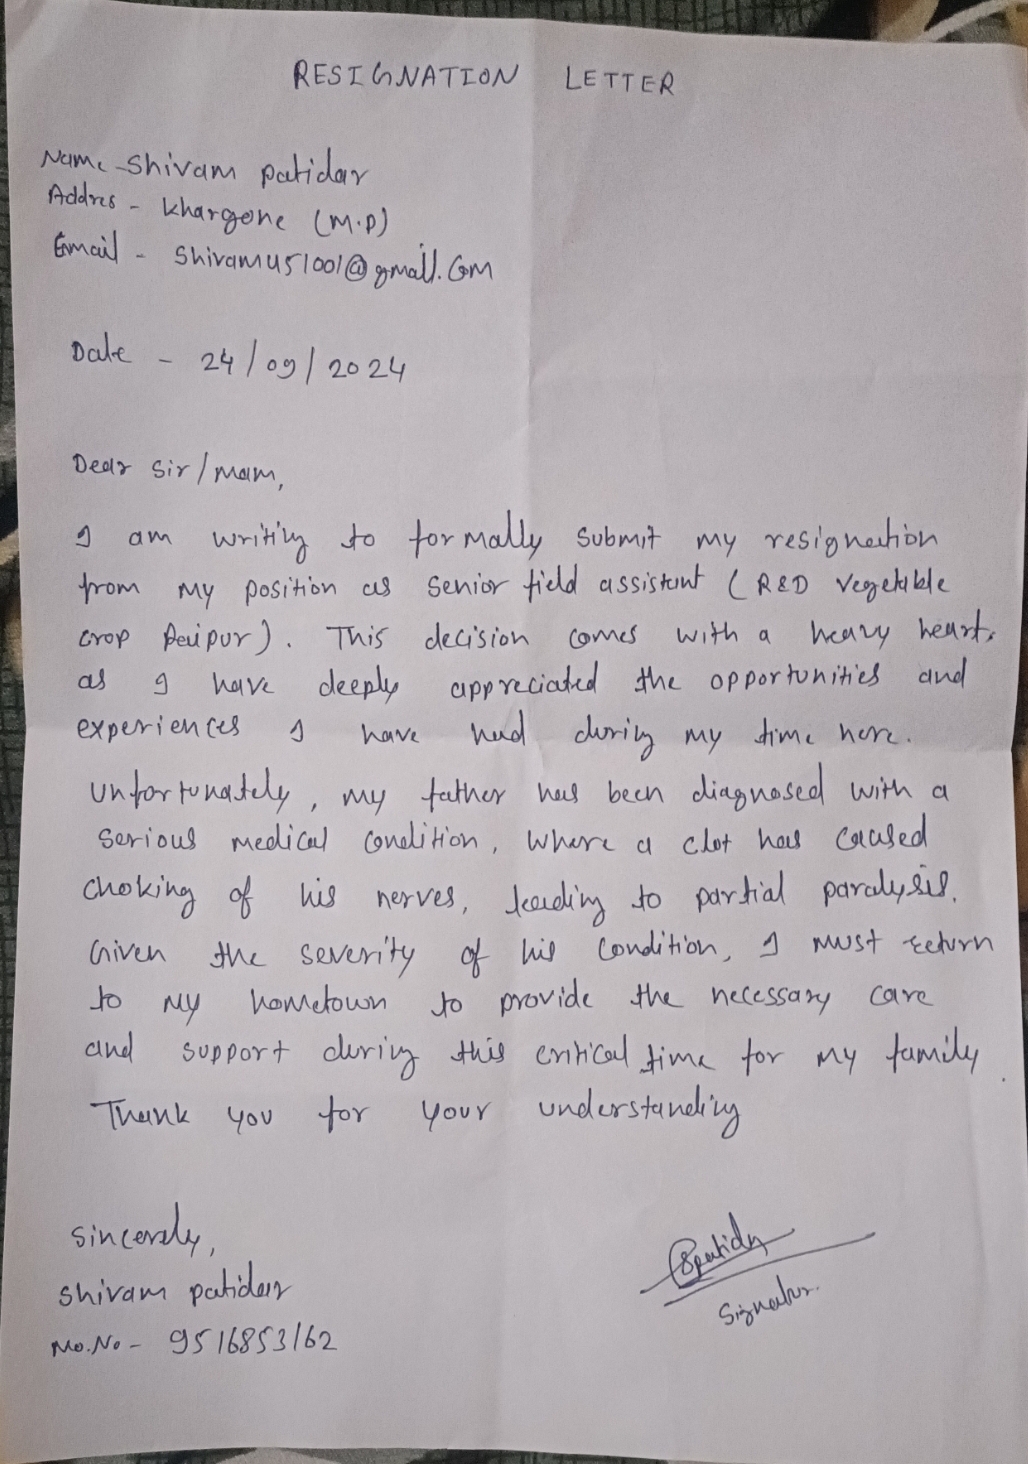 RESIGNATION LETTER
Name - Shivam patidar
Addres - Khargone (M.P)
Email - Shivamu51001@gmail.com
Date - 24/09/2024
Dear Sir/mam,
I am writing to formally submit my resignation
from my position as Senior field assistant (R&D Vegetable
crop Raipur). This decision comes with a heavy heart,
as I have deeply appreciated the opportunities and
experiences I have had during my time here.
Unfortunately, my father has been diagnosed with a
serious medical condition, where a clot has caused
choking of his nerves, leading to partial paralysis.
Given the severity of his condition, I must return
to my hometown to provide the necessary care
and support during this critical time for my family.
Thank you for your understanding
Sincerely,
Shivam patidar
Mo.No - 9516853162
Spatidar
Signatur.